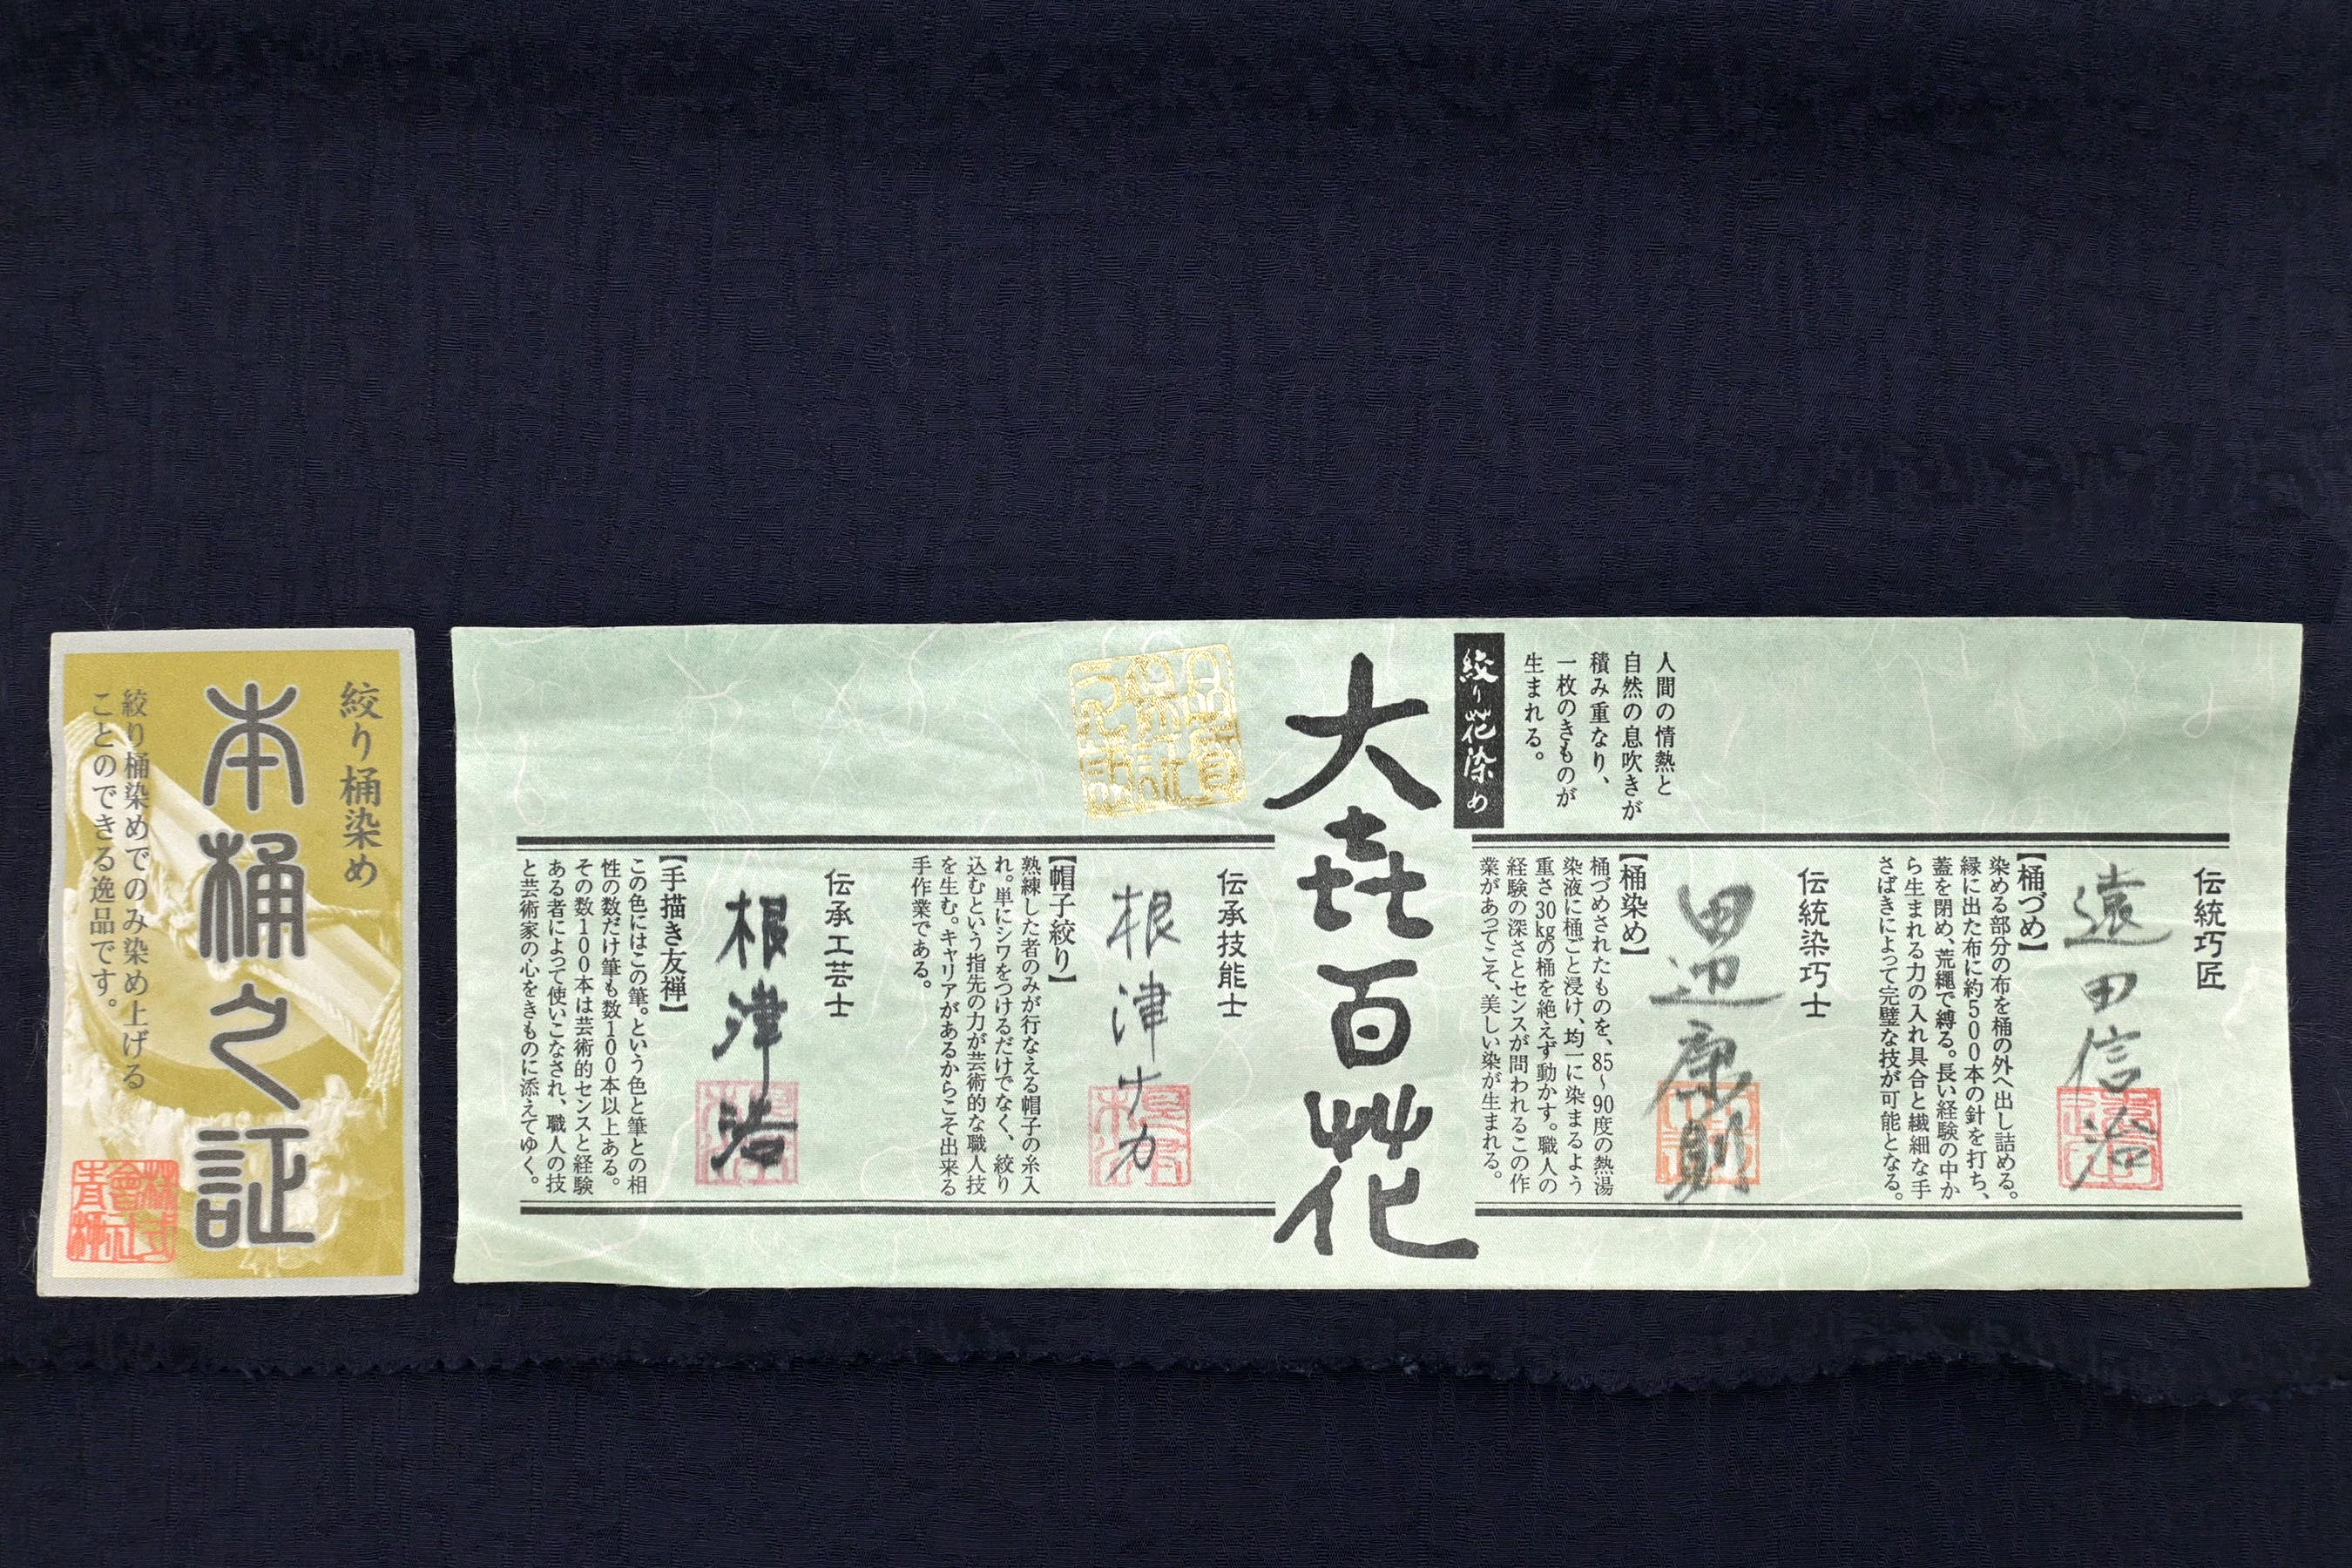 人間の情熱と
自然の息吹きが
積み重なり、
一枚のきものが
生まれる。
絞り花染め
大㐂百花
伝統巧匠
遠田信治
【桶づめ】
染める部分の布を桶の外へ出し詰める。
縁に出た布に約500本の針を打ち、
蓋を閉め、荒縄で縛る。長い経験の中か
ら生まれる力の入れ具合と繊細な手
さばきによって完璧な技が可能となる。
伝統染巧士
田辺康則
【桶染め】
桶づめされたものを、85~90度の熱湯
染液に桶ごと浸け、均一に染まるよう
重さ30kgの桶を絶えず動かす。職人の
経験の深さとセンスが問われるこの作
業があってこそ、美しい染が生まれる。
伝承技能士
根津ナカ
【帽子絞り】
熟練した者のみが行なえる帽子の糸入
れ。単にシワをつけるだけでなく、絞り
込むという指先の力が芸術的な職人技
を生む。キャリアがあるからこそ出来る
手作業である。
伝承工芸士
根津浩
【手描き友禅】
この色にはこの筆。という色と筆との相
性の数だけ筆も数100本以上ある。
その数100本は芸術的センスと経験
ある者によって使いこなされ、職人の技
と芸術家の心をきものに添えてゆく。
絞り桶染め
本桶之証
絞り桶染めでのみ染め上げる
ことのできる逸品です。